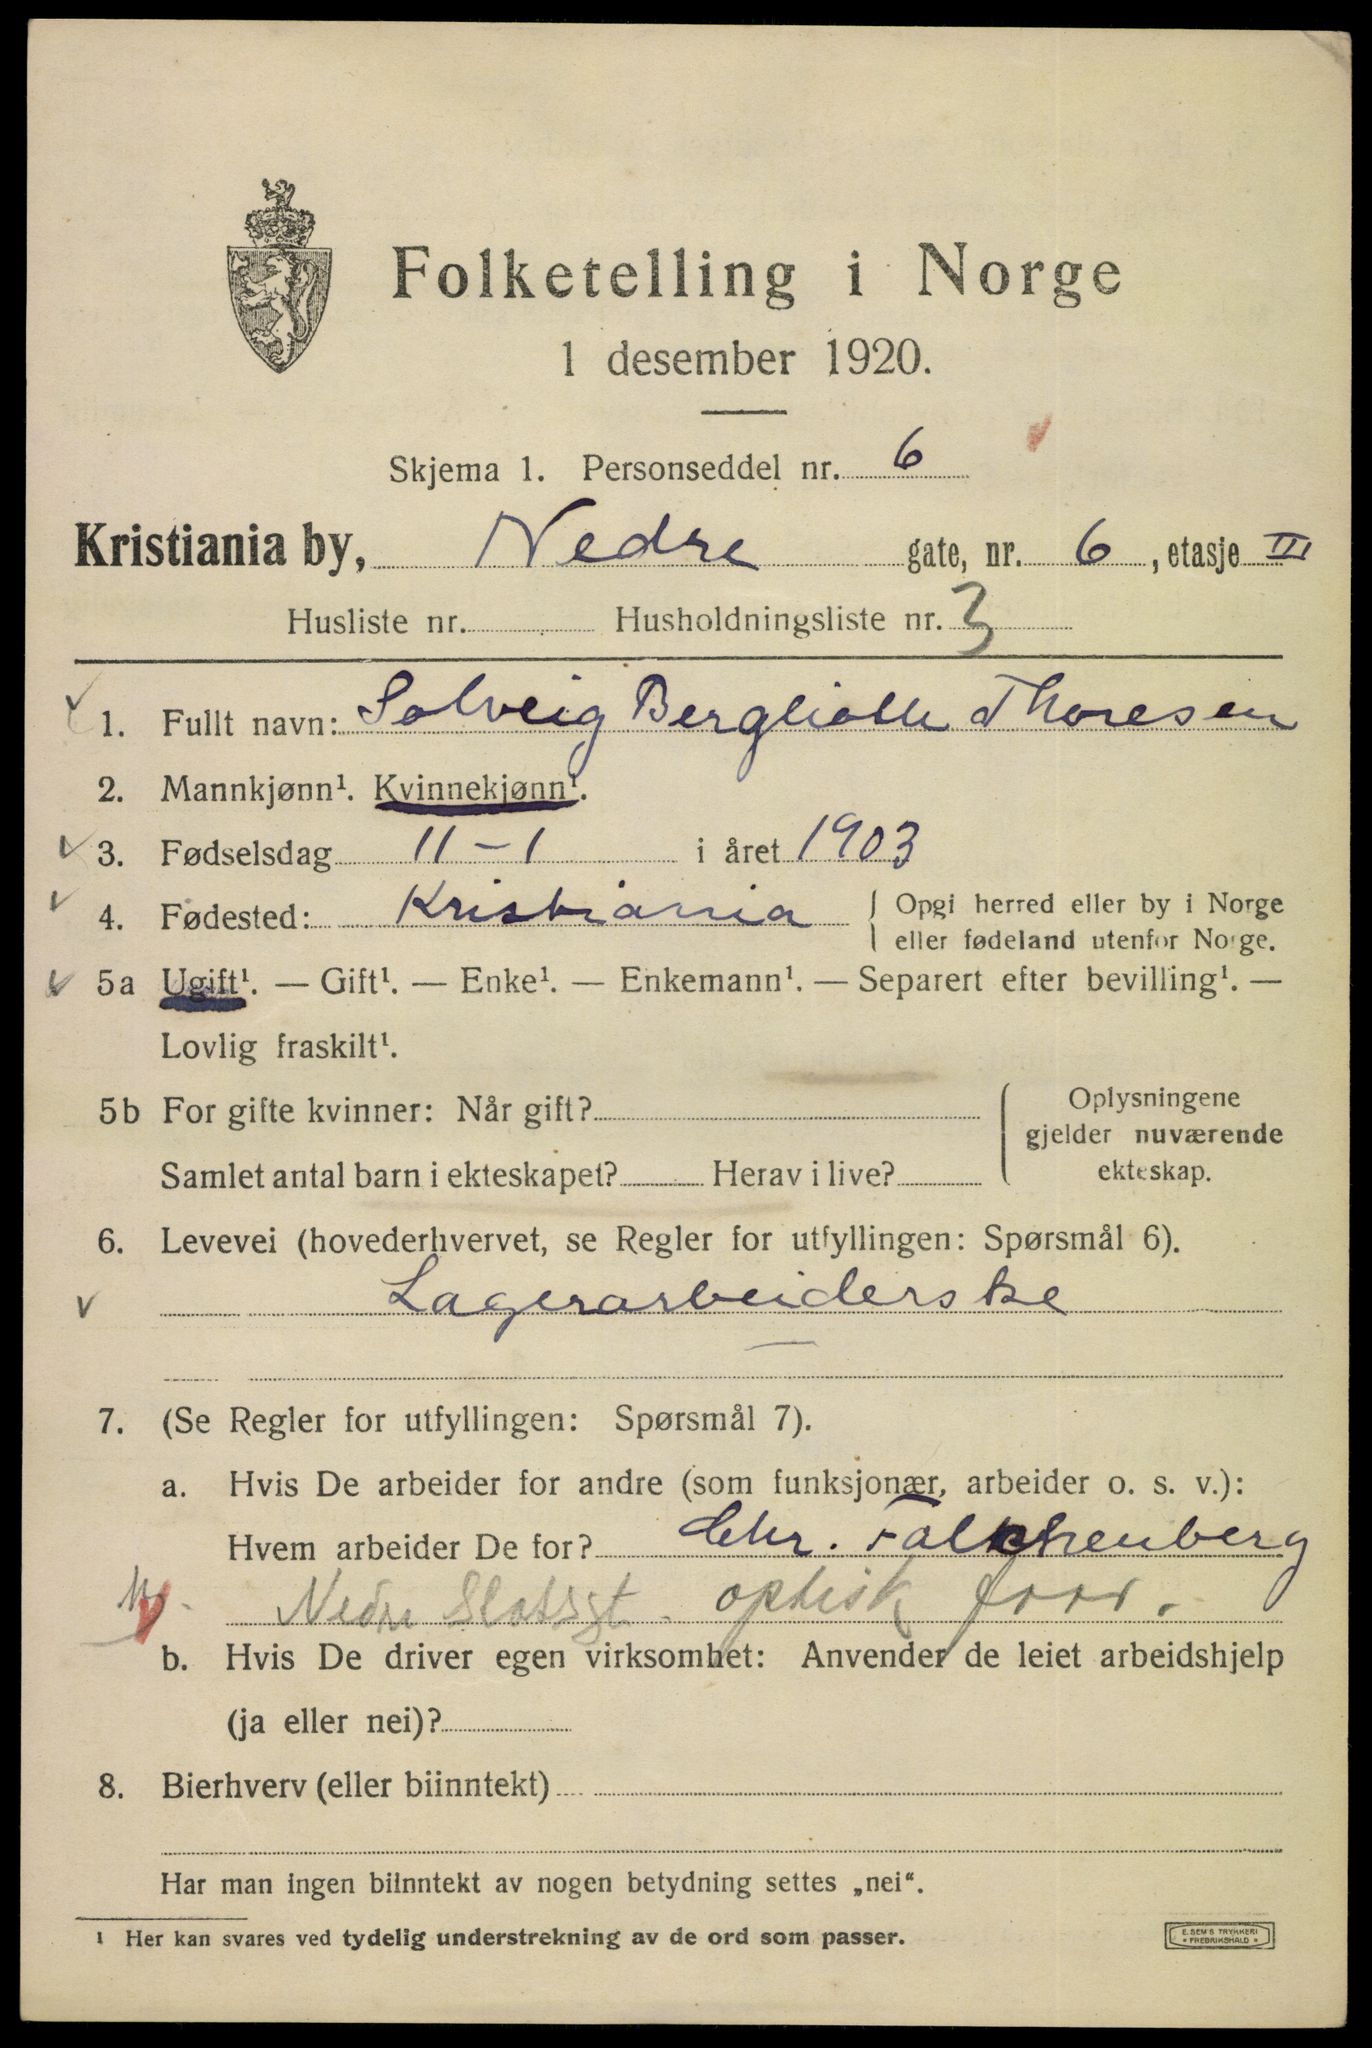 Folketelling i Norge
1 desember 1920.
Skjema 1. Personseddel nr. 6
Kristiania by, Nedre gate, nr. 6, etasje III
Husliste nr. Husholdningsliste nr. 3
1. Fullt navn: Solveig Bergliotte Thoresen
2. Mannkjønn¹. Kvinnekjønn¹.
3. Fødselsdag 11-1 i året 1903
4. Fødested: Kristiania { Opgi herred eller by i Norge
eller fødeland utenfor Norge.
5a Ugift¹. — Gift¹. — Enke¹. — Enkemann¹. — Separert efter bevilling¹. —
Lovlig fraskilt¹.
5b For gifte kvinner: Når gift? { Oplysningene
gjelder nuværende
Samlet antal barn i ekteskapet? Herav i live? ekteskap.
6. Levevei (hovederhvervet, se Regler for utfyllingen: Spørsmål 6).
Lagerarbeiderske
7. (Se Regler for utfyllingen: Spørsmål 7).
a. Hvis De arbeider for andre (som funksjonær, arbeider o. s. v.):
Hvem arbeider De for? Chr. Falchenberg
Nedre Slotsgt. optisk forr.
b. Hvis De driver egen virksomhet: Anvender de leiet arbeidshjelp
(ja eller nei)?
8. Bierhverv (eller biinntekt)
Har man ingen biinntekt av nogen betydning settes „nei“.
¹ Her kan svares ved tydelig understrekning av de ord som passer.
E. SEM'S TRYKKERI
* FREDRIKSHALD *